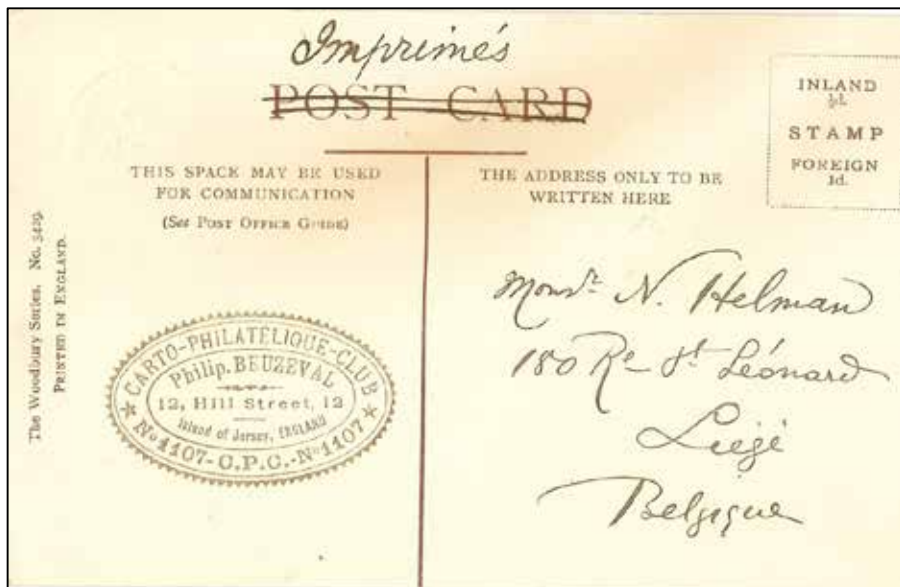 Imprimés
POST CARD
THIS SPACE MAY BE USED
FOR COMMUNICATION
(See POST OFFICE GUIDE)
THE ADDRESS ONLY TO BE
WRITTEN HERE
INLAND
½d.
STAMP
FOREIGN
1d.
The Woodbury Series. No. 3429.
PRINTED IN ENGLAND.
CARTO-PHILATÉLIQUE-CLUB
Philip. BEUZEVAL
12, Hill Street, 12
Island of Jersey, ENGLAND
No 1107-C.P.C.-No 1107
Monsr N. Helman
180 Re St Léonard
Liegé
Belgique